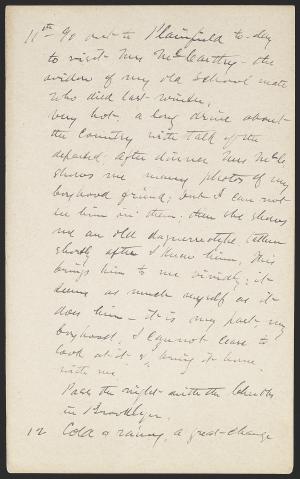 11th Go out to Plainfield to-day
to visit Mrs McCarthy - the
widow of my old school mate
who died last winter.
Very hot, a long drive about
the country with talk of the
departed; after dinner Mrs McC
shows me many photos of my
boyhood friend; but I can not
see him in them; then she shows
me an old daguerreotype, taken
shortly after I knew him; This
brings him to me vividly; it
seems as much myself as it
does him - it is my past, my
boyhood, I cannot cease to
look at it & bring it home
with me.
Pass the night with the
in Brooklyn.
12 Cold & rainy, a great change